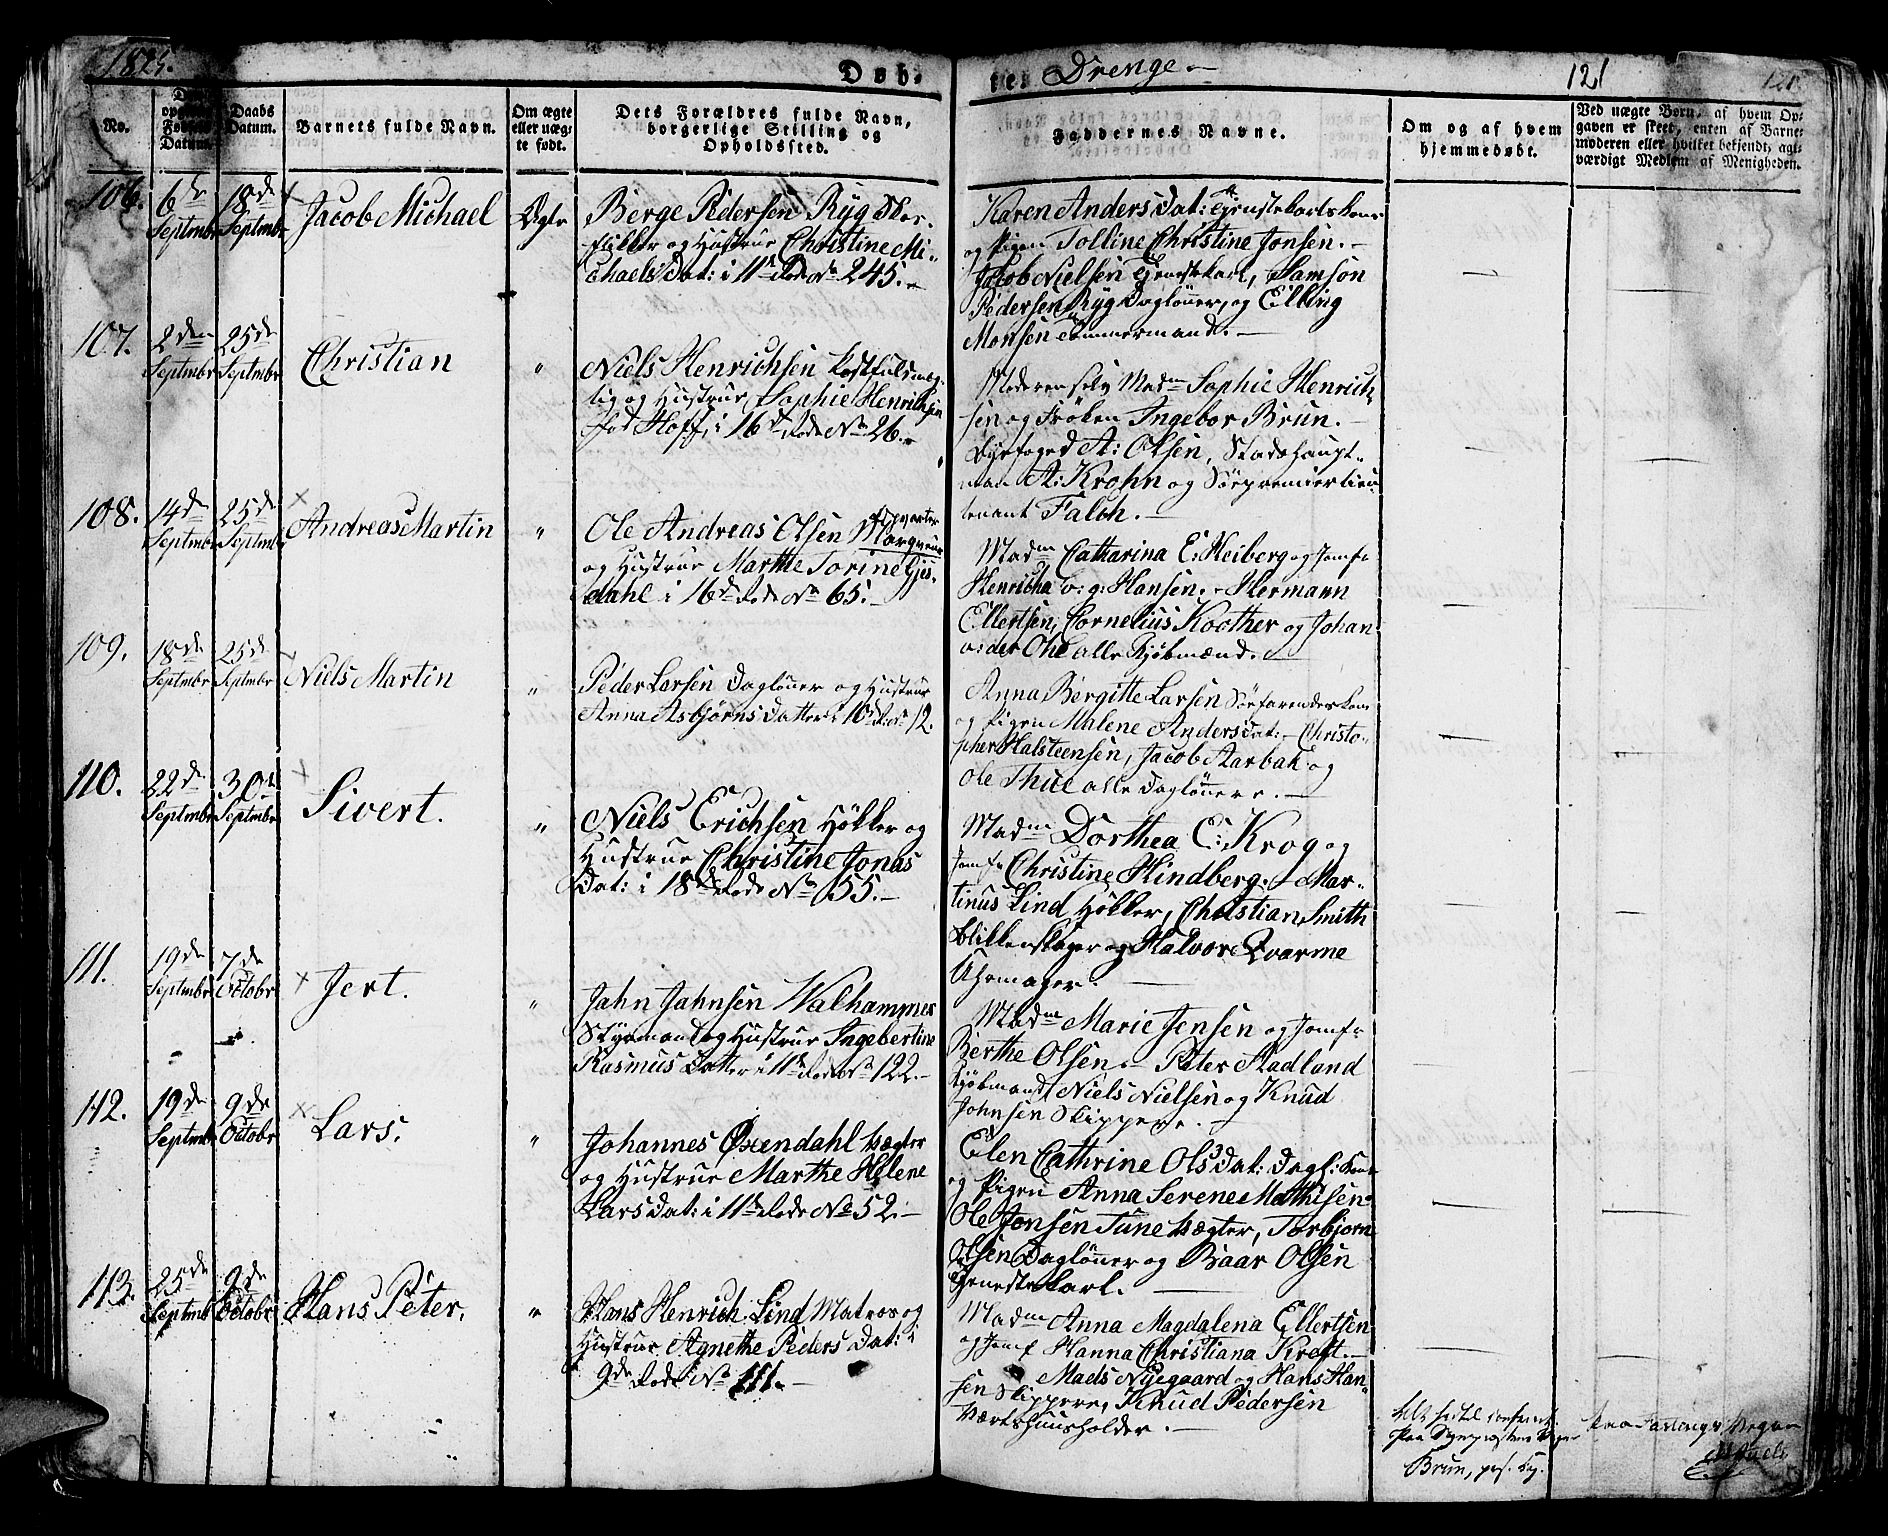 1825.
Døb-
te Drenge
121
No.
Daabs
Datum.
Barnets fulde Navn.
Om ægte
eller uæg-
te født.
Dets Forældres fulde Navn,
borgerlige Stilling og
Opholdssted.
Faddernes Navne.
Om og af hvem
hjemmedøbt.
Ved uægte Børn, af hvem Op-
gaven er skeet, enten af Barne-
moderen eller hvilket bekjendt, agt-
værdigt Medlem af Menigheden.
106. 6de Septmbr 18de Septmbr Jacob Michael Ægte
Berge Pedersen Ryg
og Hustrue Christine Mi-
chaels Dat: i 11te Rode No 245.
Karen Anders Dat: Tjenstekarls Kone
og Pigen Tolline Christine Jonsen.
Jacob Nielsen Tjenstekarl, Samson
Pedersen Ryg Dagløner, og Elling
Monsen Tømmermand.
107. 2den Septmbr 25de Septmbr Christian "
Niels Henrichsen
og Hustrue, Sophie Henrichsen
fød Hoff, i 16de Rode No 26.
Moderen selv Madm Sophie Henrich-
sen og Frøken Ingebor Brun.
Byefoged A: Olsen, Stadshaupt-
man A: Krohn og Søepremierlieu-
tenant Falch.
108. 14de Septmbr 25de Septmbr Andreas Martin "
Ole Andreas Olsen
og Hustrue Marthe Torine Gjes-
dahl i 16de Rode No 65.
Madm Catharina E: Heiberg og Jomfr
Henricha v: g: Hansen. Hermann
Ellertsen, Cornelius Koother og Johan
v: der Ohe alle Kjøbmænd.
109. 18de Septmbr 25de Septmbr Niels Martin "
Peder Larsen Dagløner og Hustrue
Anna Asbjørns Datter i 10de R: No 12.
Anna Bergitte Larsen Søefarendes Kone
og Pigen Malene Anders Dat: Christo-
pher Halsteensen, Jacob Aarbak og
Ole Thue alle Daglønere.
110. 22de Septmbr 30te Septmbr Sivert. "
Niels Erichsen Høkker og
Hustrue Christine Jonas
Dat: i 18de Rode No 155.
Madm Dorthea C: Krog og
Jomfr Christine Hindberg. Mar-
tinus Lind Høkker, Christian Smith
Blikkenslager og Halvor Qvarme
Uhrmager.
111. 19de Septmbr 7de Octobr Jert. "
Jahn Jahnsen Walhammer
Styrmand og Hustrue Ingebertine
Rasmus Datter i 11te Rode No 122.
Madm Marie Jensen og Jomfr
Berthe Olsen. Peter Stadland
Kjøbmand, Niels Nielsen og Knud
Johnsen Skippere.
112. 19de Septmbr 9de Octobr Lars. "
Johannes Øxendahl Vægter
og Hustrue Marthe Helene
Lars Dat: i 11te Rode No 52.
Elen Cathrine Ols Dat: Dagl: Kone
og Pigen Anna Serene Mathisen.
Ole Jonsen Tune Vægter, Torbjørn
Olsen Dagløner og Baar Olsen
Tjenestekarl.
113. 25de Septmbr 9de Octobr Hans Peter. "
Hans Henrich Lind Matros og
Hustrue Agnethe Peders Dat: i
9de Rode No 111.
Madm Anna Magdalena Ellertsen
og Jomf Hanna Christiana Kroft.
Mads Nyegaard og Hans Han-
sen Skippere, Knud Pedersen
Værtshuusholder.
Brun,